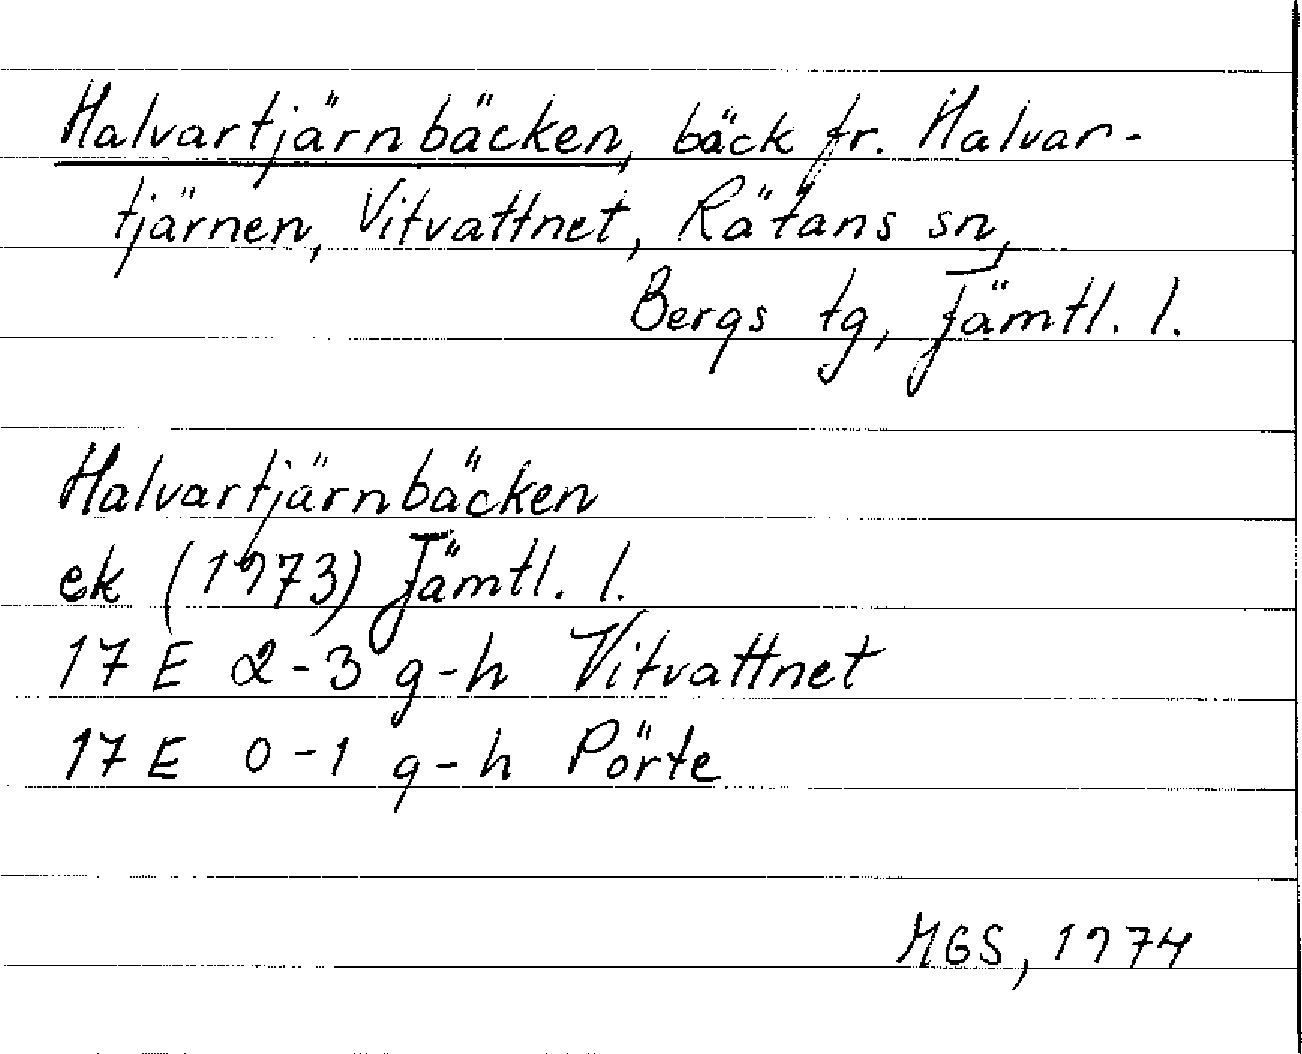 Halvartjärnbäcken, bäck fr. Halvar-
tjärnen, Vitvattnet, Rätans sn,
Bergs tg, Jämtl. l.
Halvartjärnbäcken
ek (1973) Jämtl. l.
17 E 2-3 g-h Vitvattnet
17 E 0-1 g-h Pörte
MGS, 1974